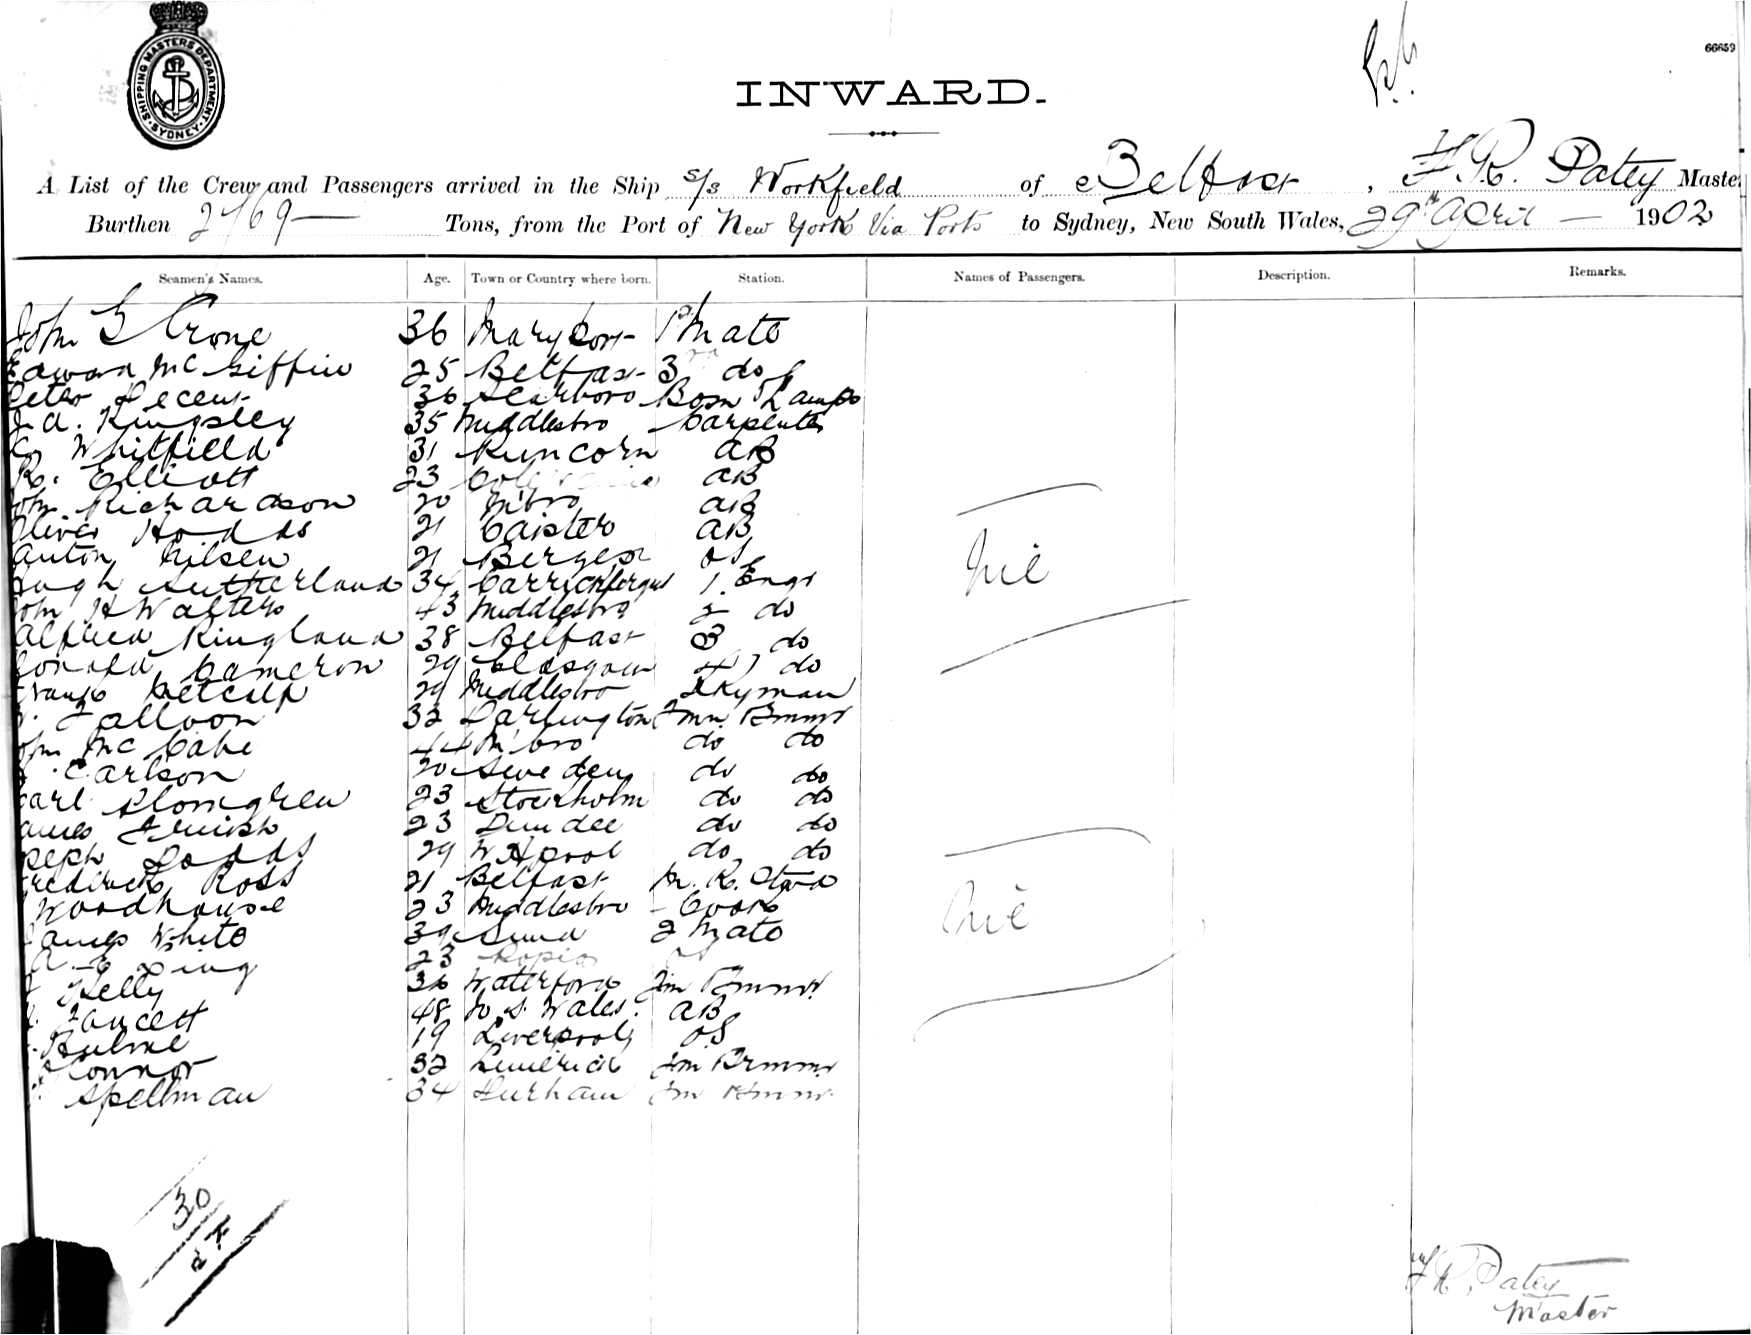 SHIPPING MASTERS DEPARTMENT · SYDNEY ·
66659
INWARD.
A List of the Crew and Passengers arrived in the Ship s/s Workfield of Belfast, F.R. Patey Master
Burthen 2769 Tons, from the Port of New York Via Ports to Sydney, New South Wales, 29th April 1902
Seamen's Names. Age. Town or Country where born. Station. Names of Passengers. Description. Remarks.
John G Crone 36 Maryport 1st Mate
Edward McGiffin 25 Belfast 3rd do
Peter 36 Scarboro Bosn & Lamps
J.A. Kingsley 35 Middlesbro Carpenter
C. Whitfield 31 Runcorn AB
R. Elliott 23 AB
John Richardson 20 M'bro AB
Oliver Hodds 21 Caister AB
Anton Nilsen 21 Bergen OS
Hugh Sutherland 34 Carrickfergus 1. Engr
John H Walters 43 Middlesbro 2 do
Alfred Kingland 38 Belfast 3 do
Donald Cameron 29 Glasgow 4 do
Frank Metcalf 29 Middlesbro Dkyman
Falloon 32 Darlington Fmn Trmmr
John McCabe 44 M'bro do do
Carlson 20 Sweden do do
Carl Blomgren 23 Stockholm do do
James 23 Dundee do do
Joseph Dodds 29 W Hpool do do
Frederick Ross 21 Belfast M.R. Stwd
Woodhouse 23 Middlesbro Cook
James White 39 Sund 2 Mate
A. E King 23 OS
Kelly 36 Waterford Fm Trmmr
Faucett 48 N.S. Wales. AB
Hulme 19 Liverpool OS
O'Connor 32 Limerick Fm Trmmr
Spellman 34 Durham Fm Trmmr
Nil
Nil
30
F.R. Patey
Master